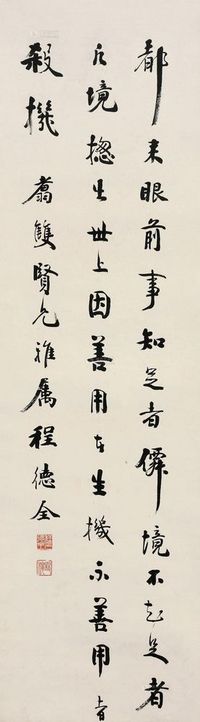 都來眼前事知足者僊境不知足者
凡境總出世上因善用者生機不善用者
殺機 翥雙賢兄雅屬程德全